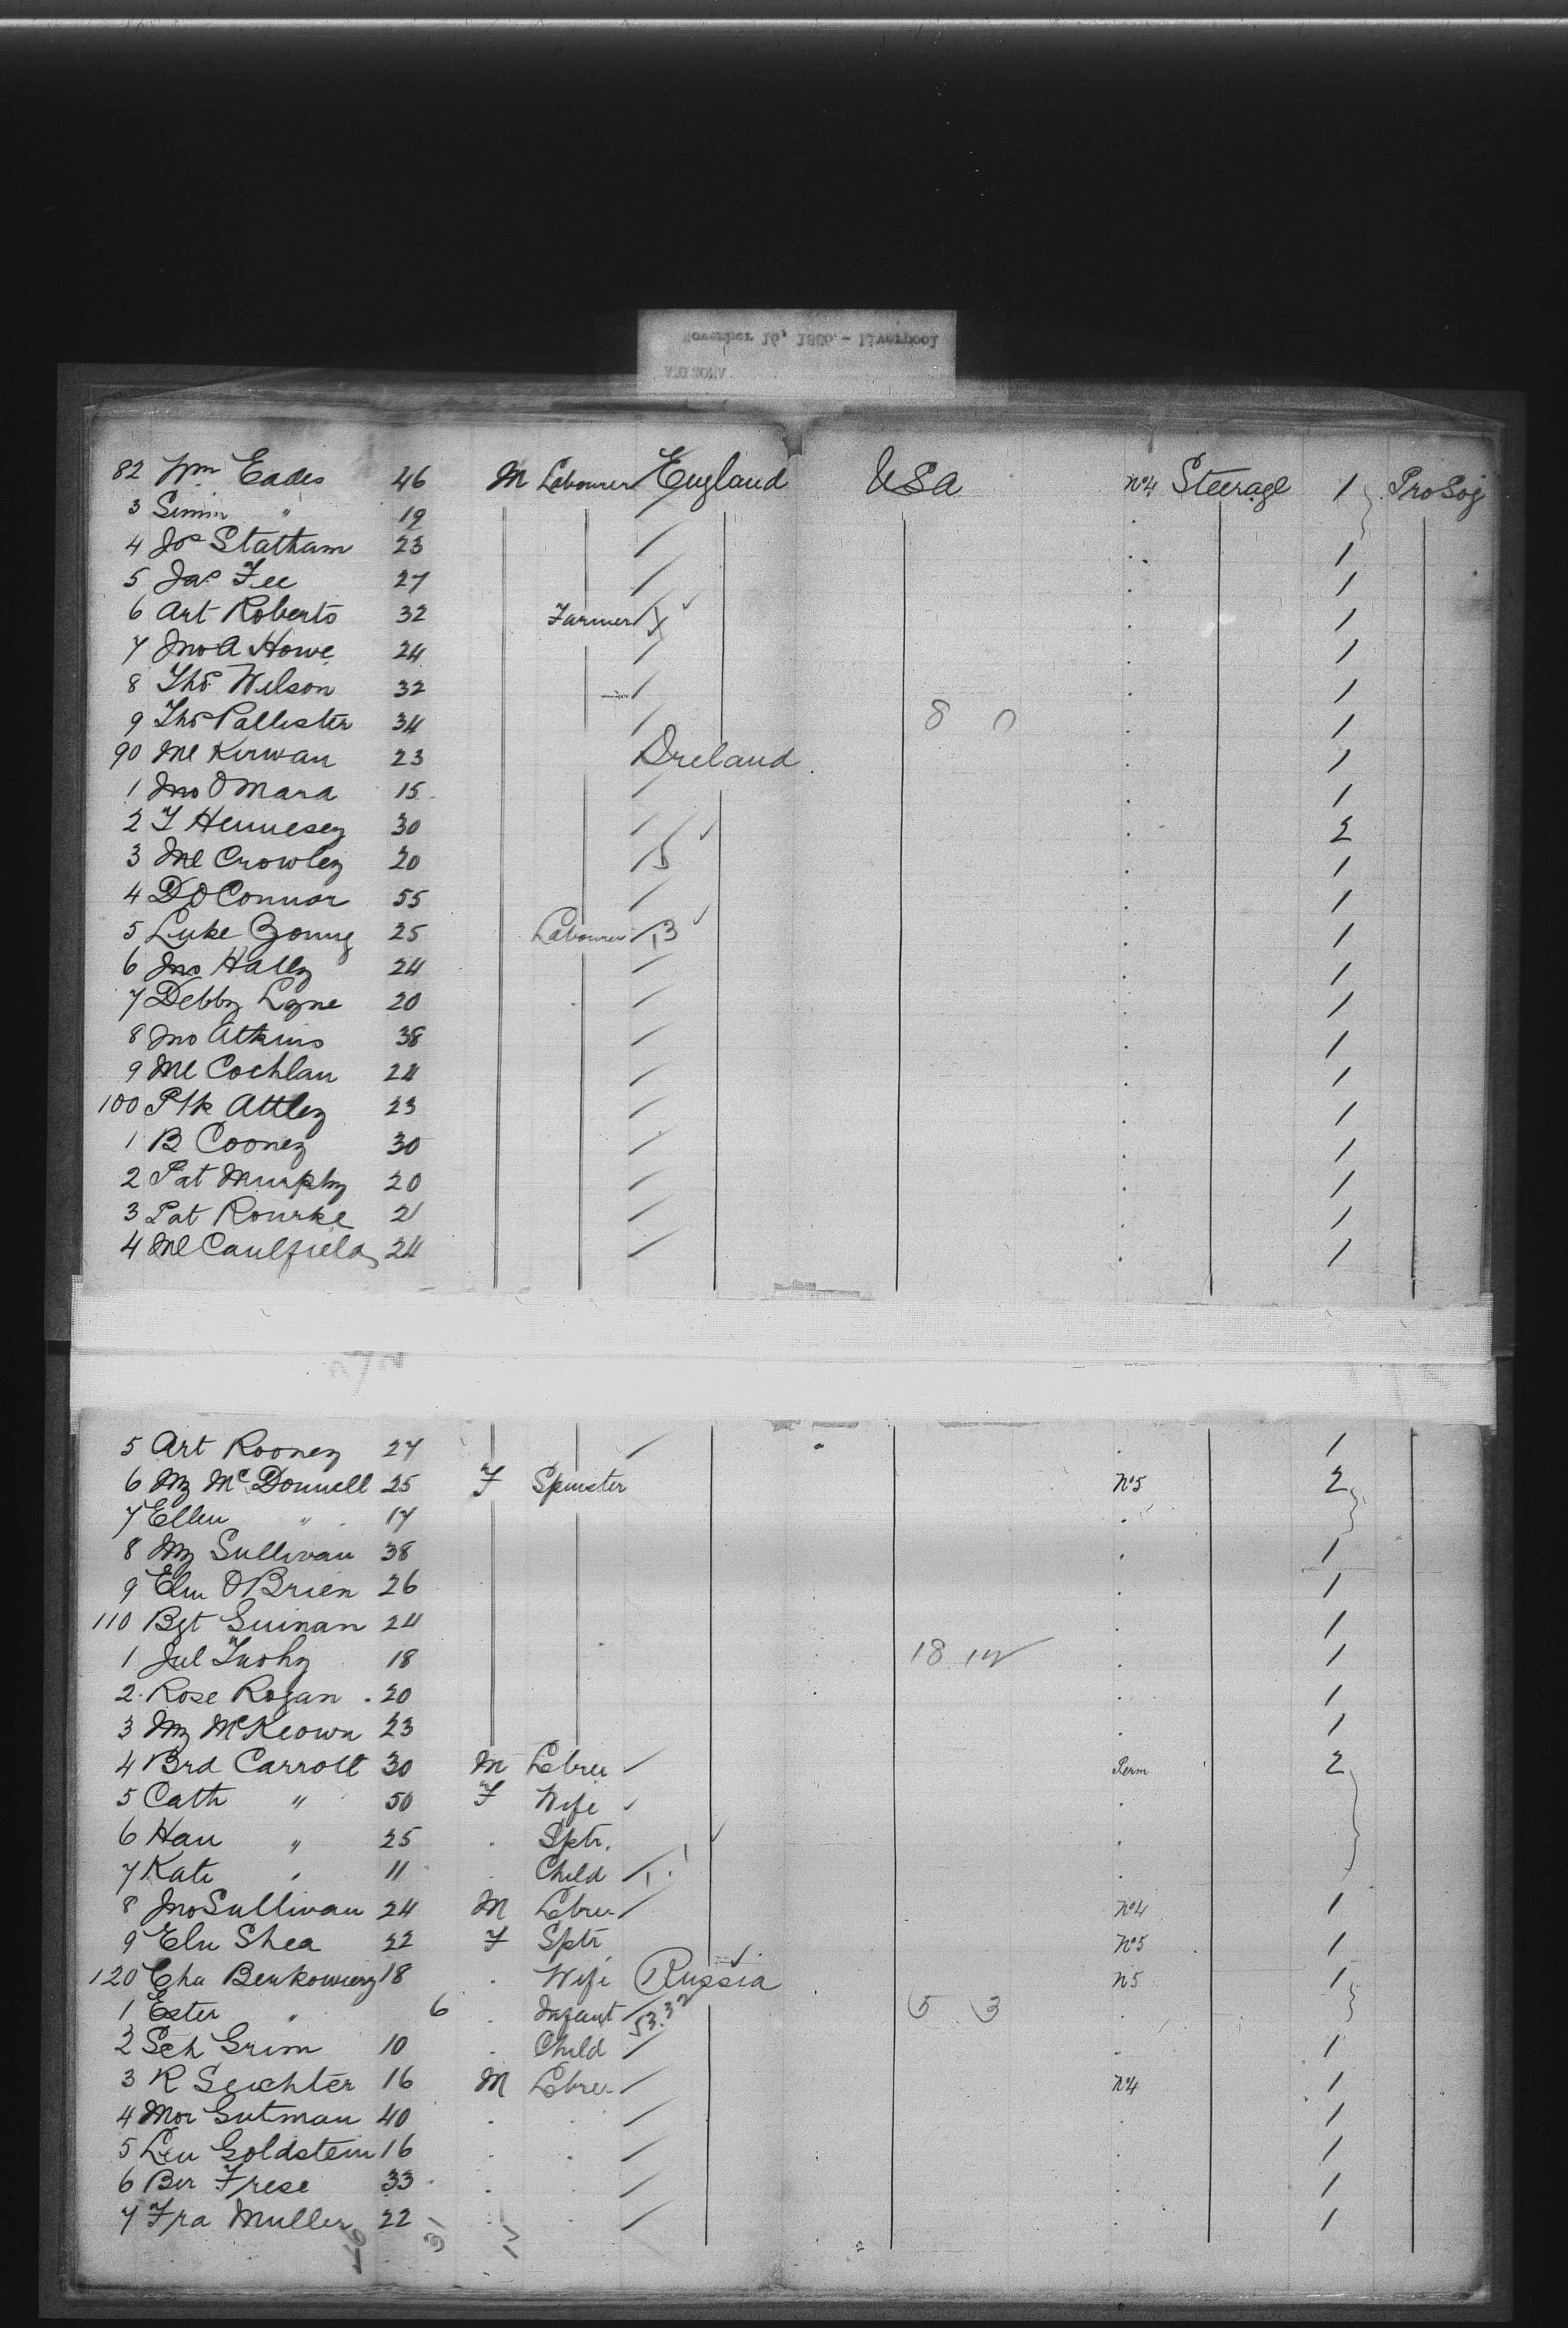 November 16, 1896 - Liverpool
ARIZONA
82 Wm Eades 46 M Labourer England USA No4 Steerage 1 ProSoj
3 Simin " 19
4 Jos Statham 23 1
5 Jas Fee 27 1
6 Art Roberts 32 Farmer 1
7 Jno A Howe 24 1
8 Thos Wilson 32 1
9 Thos Pallister 34 8 0 1
90 Ml Kirwan 23 Ireland 1
1 Jno O Mara 15 1
2 T Hennesey 30 2
3 Ml Crowley 20 5 1
4 D O Connor 55 1
5 Luke Young 25 Labourer 13 1
6 Jno Hally 24 1
7 Debby Lyne 20 1
8 Jno Atkins 38 1
9 Ml Cochlan 24 1
100 Ptk Attley 23 1
1 B Cooney 30 1
2 Pat Murphy 20 1
3 Pat Rourke 21 1
4 Ml Caulfield 24 1
5 Art Rooney 27 1
6 My McDonnell 25 F Spinster No5 2
7 Ellen " 17
8 My Sullivan 38 1
9 Eln O Brien 26 1
110 Bgt Guinan 24 1
1 Jul Tuohy 18 18 1
2 Rose Rogan 20 1
3 My McKeown 23 1
4 Brd Carroll 30 M Lebrer Perm 2
5 Cath " 50 F Wife
6 Han " 25 Sptr.
7 Kate " 11 Child
8 Jno Sullivan 24 M Lebrer No4 1
9 Eln Shea 22 F Sptr No5 1
120 Cha Berkowiecz 18 Wife Russia n5 1
1 Ester " 6 Infant 5 3
2 Sch Grim 10 Child 1
3 R Seichter 16 M Lebrer No4 1
4 Mor Gutman 40 1
5 Leu Goldstein 16 1
6 Ber Frese 33 1
7 Fra Muller 22 1